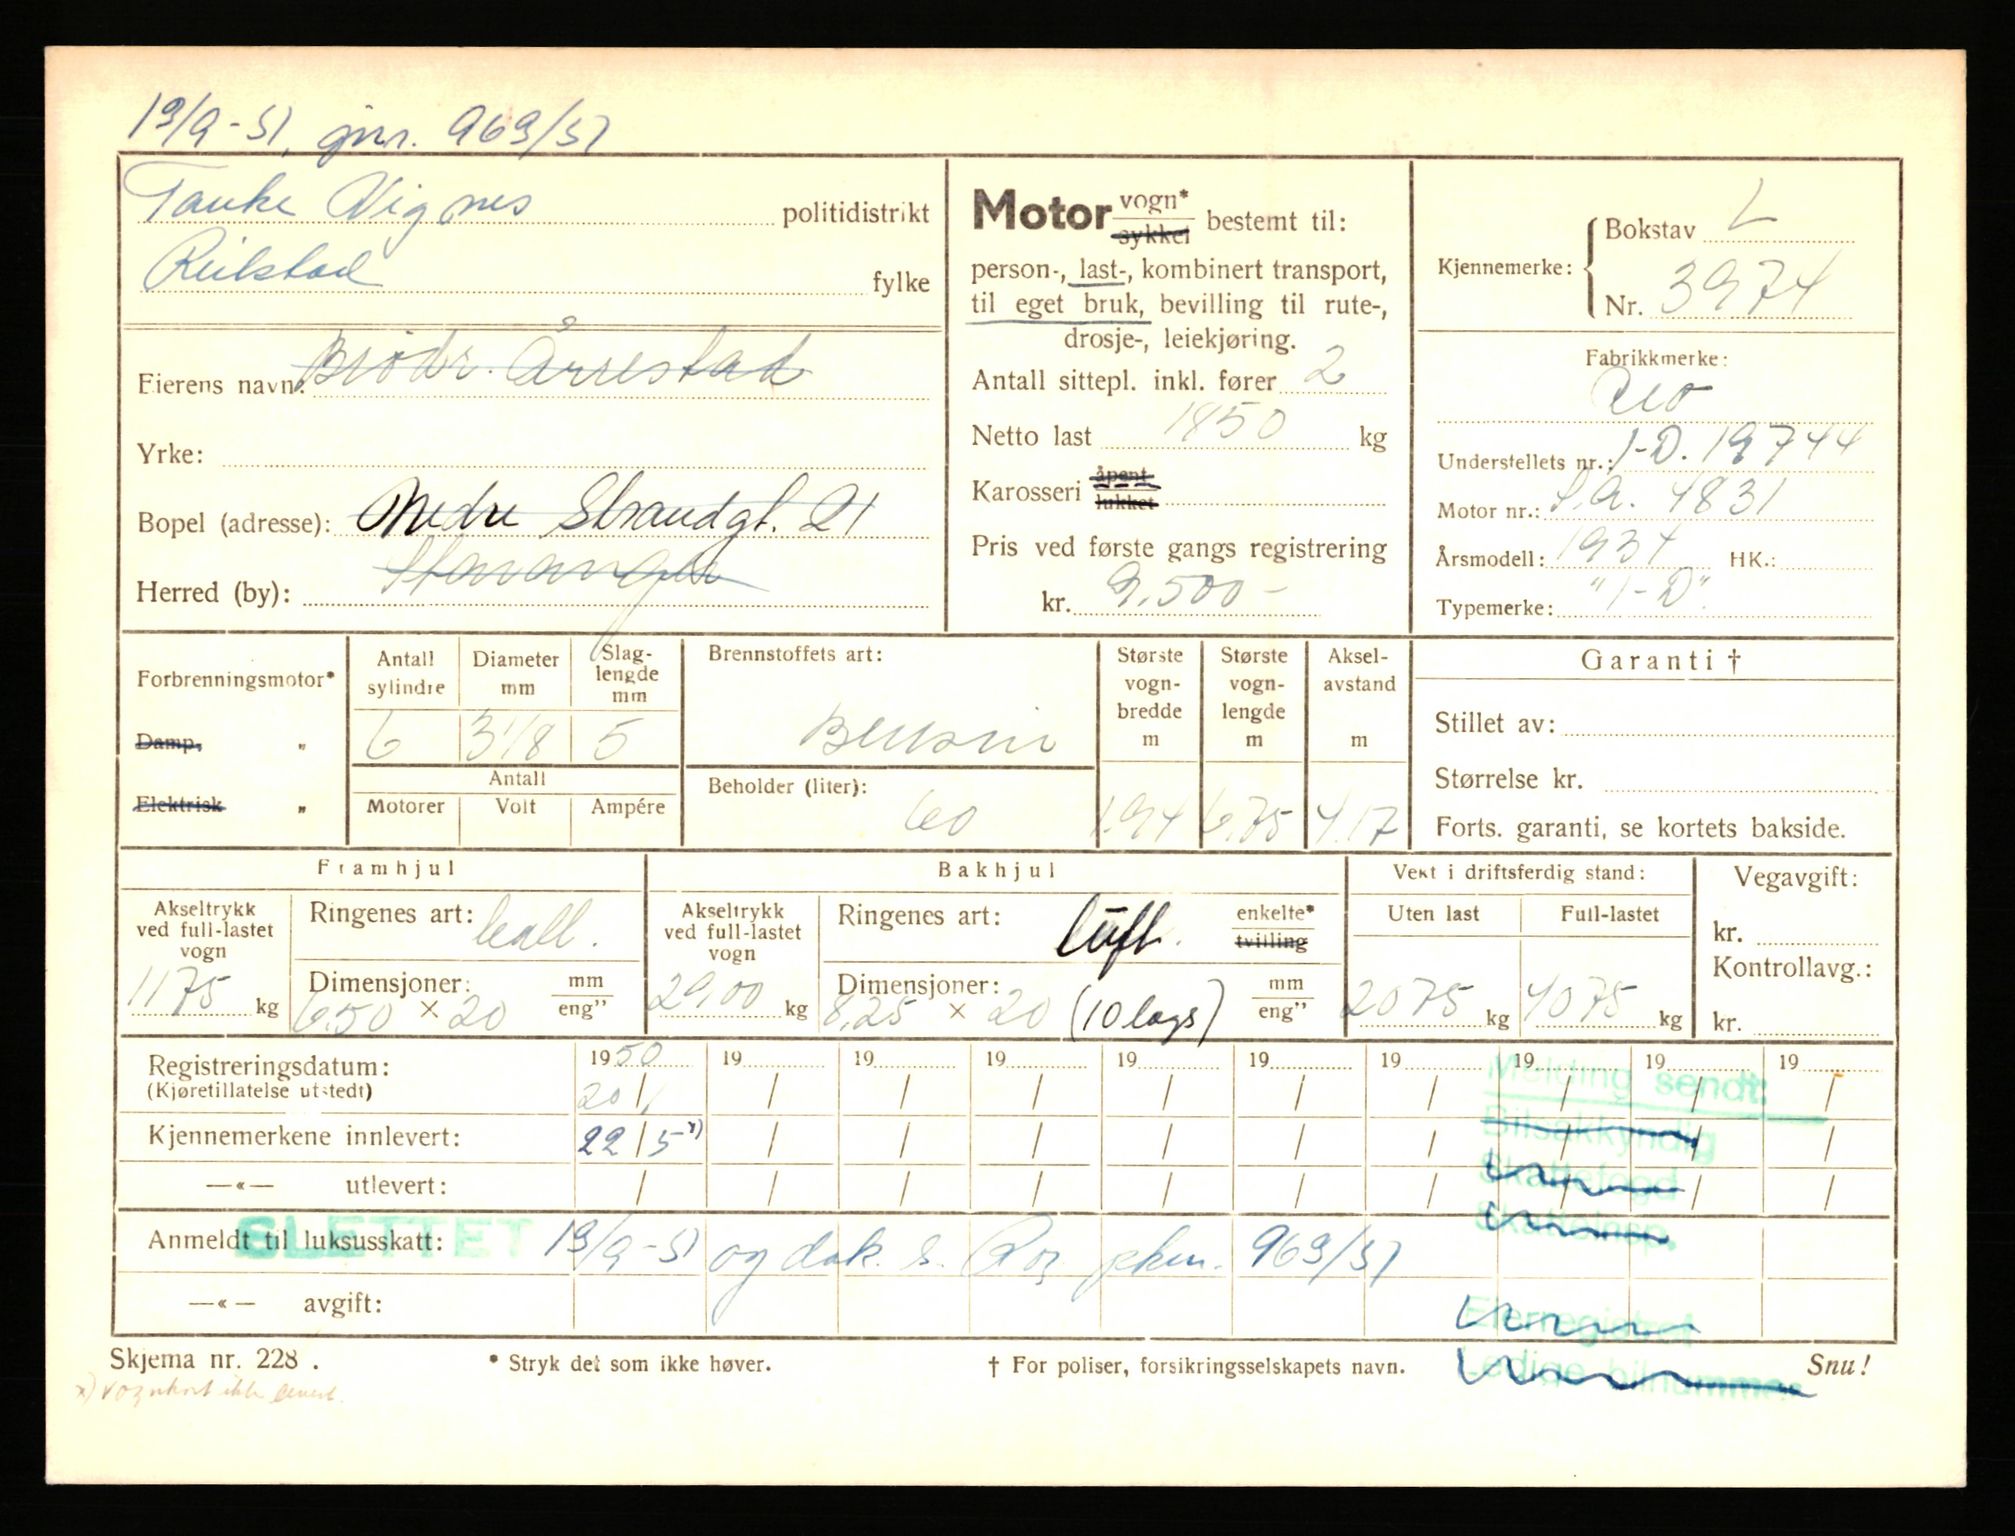 19/9-51, jnr. 963/51
Tanke Vignes politidistrikt
Reilstad fylke
Eierens navn: Brødr. Årrestad
Yrke:
Bopel (adresse): Nedre Strandgt. 21
Herred (by): Stavanger
Motor vogn* sykkel bestemt til:
person-, last-, kombinert transport,
til eget bruk, bevilling til rute-,
drosje-, leiekjøring.
Antall sittepl. inkl. fører 2
Netto last 1850 kg
Karosseri åpent lukket
Pris ved første gangs registrering
kr. 9.500-
Kjennemerke: Bokstav L
Nr. 3974
Fabrikkmerke:
Reo
Understellets nr.: 1-D. 19744
Motor nr.: S.A. 4831
Årsmodell: 1934 HK.:
Typemerke: "1-D".
Forbrenningsmotor*
Damp, "
Elektrisk "
Antall sylindre Diameter mm Slaglengde mm
6 3 1/8 5
Antall
Motorer Volt Ampére
Brennstoffets art:
Bensin
Beholder (liter):
60
Største vognbredde m
1.94
Største vognlengde m
6,75
Akselavstand m
4.17
Garanti †
Stillet av:
Størrelse kr.
Forts. garanti, se kortets bakside.
Framhjul
Akseltrykk ved full-lastet vogn
1175 kg
Ringenes art:
Dimensjoner: mm
6.50 × 20 eng"
Bakhjul
Akseltrykk ved full-lastet vogn
2900 kg
Ringenes art: luft. enkelte* tvilling
Dimensjoner: mm
8,25 × 20 (10 lags) eng"
Vekt i driftsferdig stand:
Uten last Full-lastet
2075 kg 4075 kg
Vegavgift:
kr.
Kontrollavg.:
kr.
Registreringsdatum: 1950 19 19 19 19 19 19 19 19 19
(Kjøretillatelse utstedt) 20/1 / / / / / / / / /
Kjennemerkene innlevert: 22/5 x) / / / / / / / / /
—«— utlevert: / / / / / / / / / /
Melding sendt:
Bilsakkyndig
Skattefogd
Skatteinsp.
Eierregistret
Ledige bilnummer
Anmeldt til luksusskatt: SLETTET 19/9-51 og dok. s. 963/51
—«— avgift:
Skjema nr. 228. * Stryk det som ikke høver. † For poliser, forsikringsselskapets navn. Snu!
x) vognkort ikke levert.